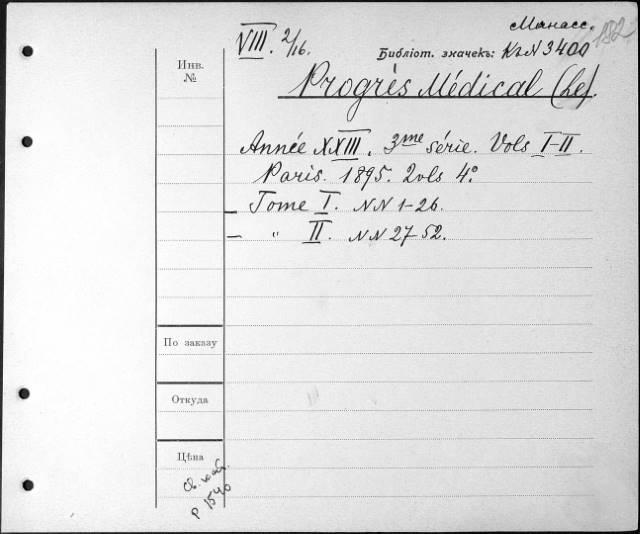 Манасс. 182
VIII. 2/16.
Библіот. значекъ: KrN 3400
Инв.
№
Progrès Médical (Le).
Année XXIII. 3me série. Vols I-II.
Paris. 1895. 2vols 4°
— Tome I. NN 1-26.
— " II. NN 27-52.
По заказу
Откуда
Цѣна
Р 1540